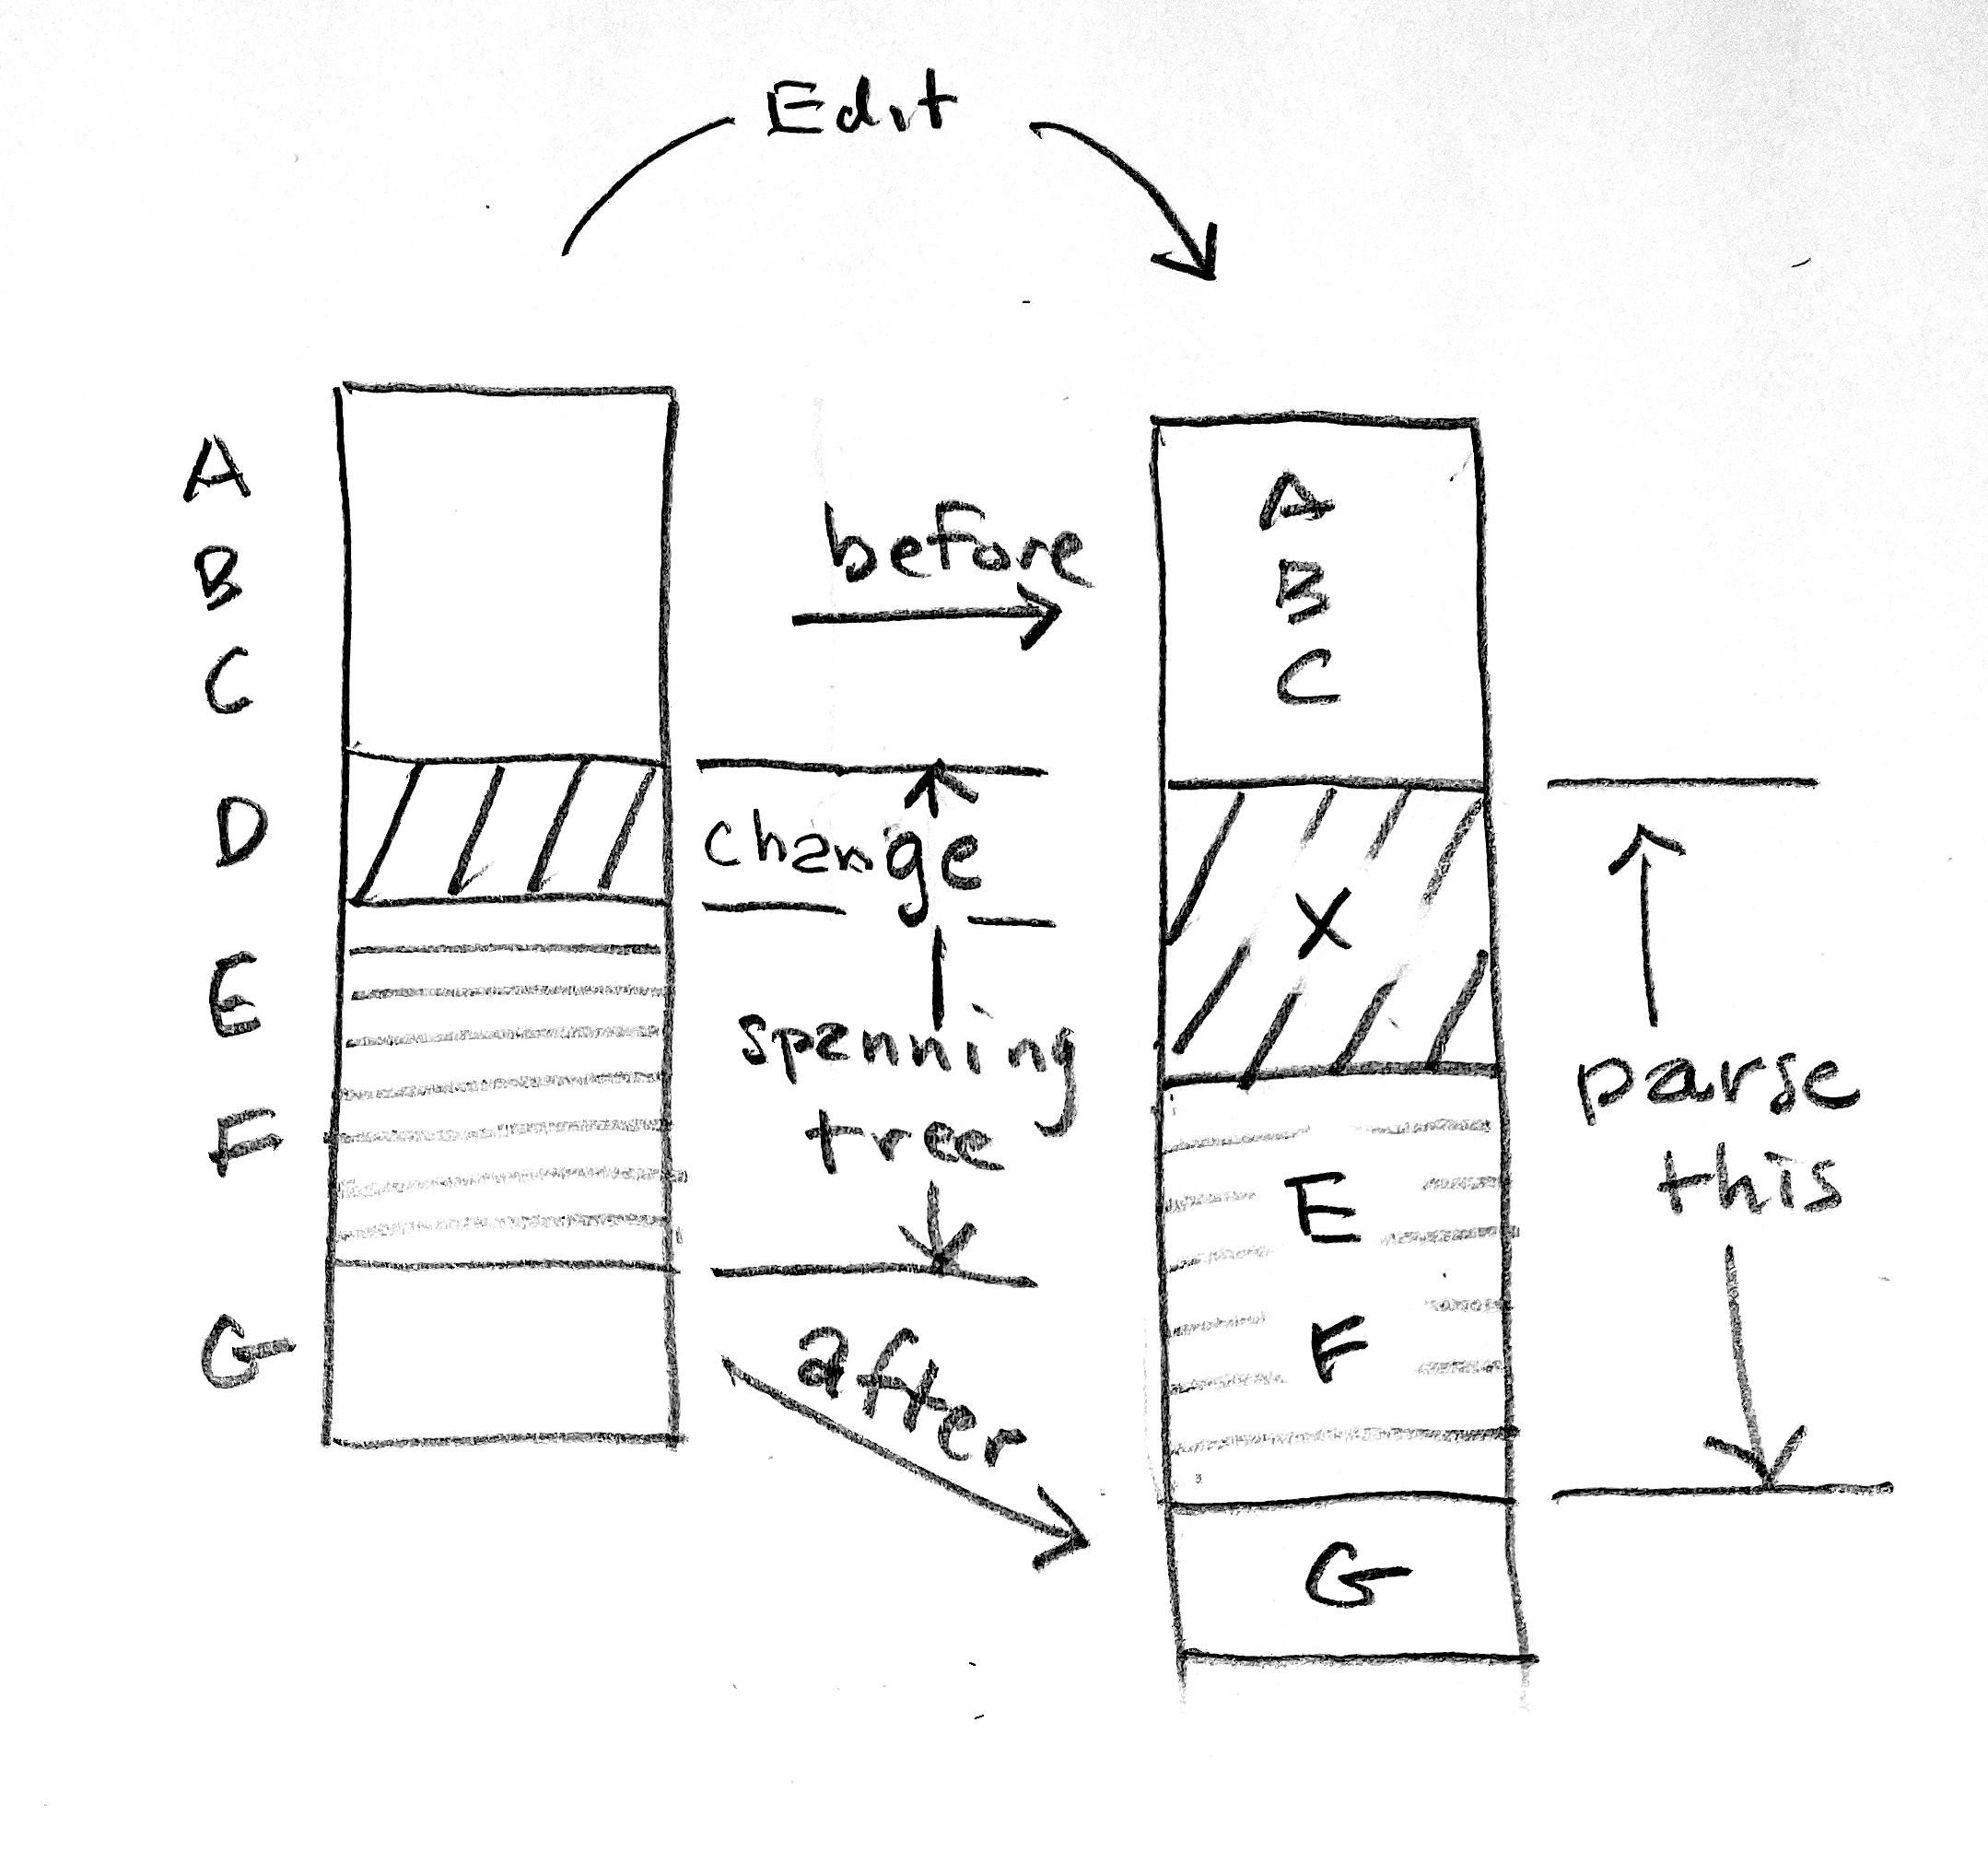 Edit
A
B
C
D
E
F
G
before
change
spanning
tree
after
A
B
C
X
E
F
G
parse
this